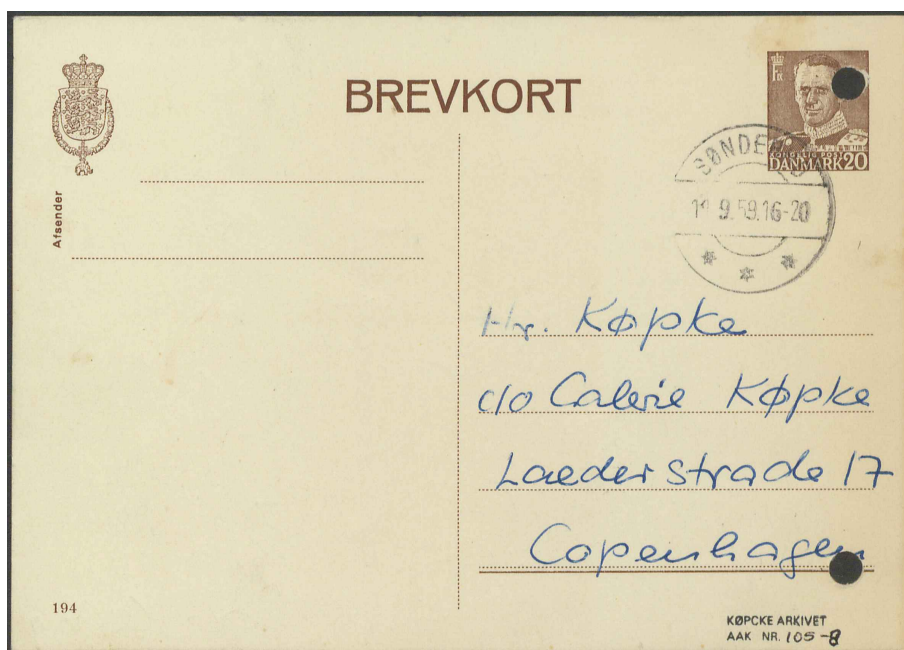 BREVKORT
Afsender
KONGELIG POST
DANMARK 20
SØNDER
9.59.16-20
Hr. Køpke
c/o Galerie Køpke
Laederstrade 17
Copenhagen
194
KØPCKE ARKIVET
AAK NR. 105-8